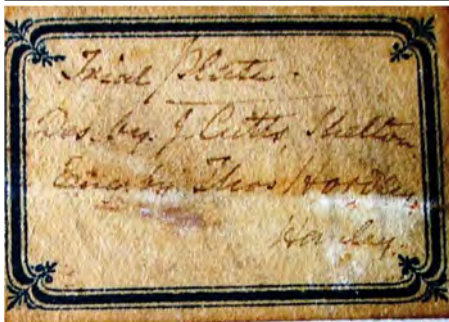 Trial Plate.
Des. by. J. Cutts, Shelton
Eng. by Thos Hordley
Hanley.